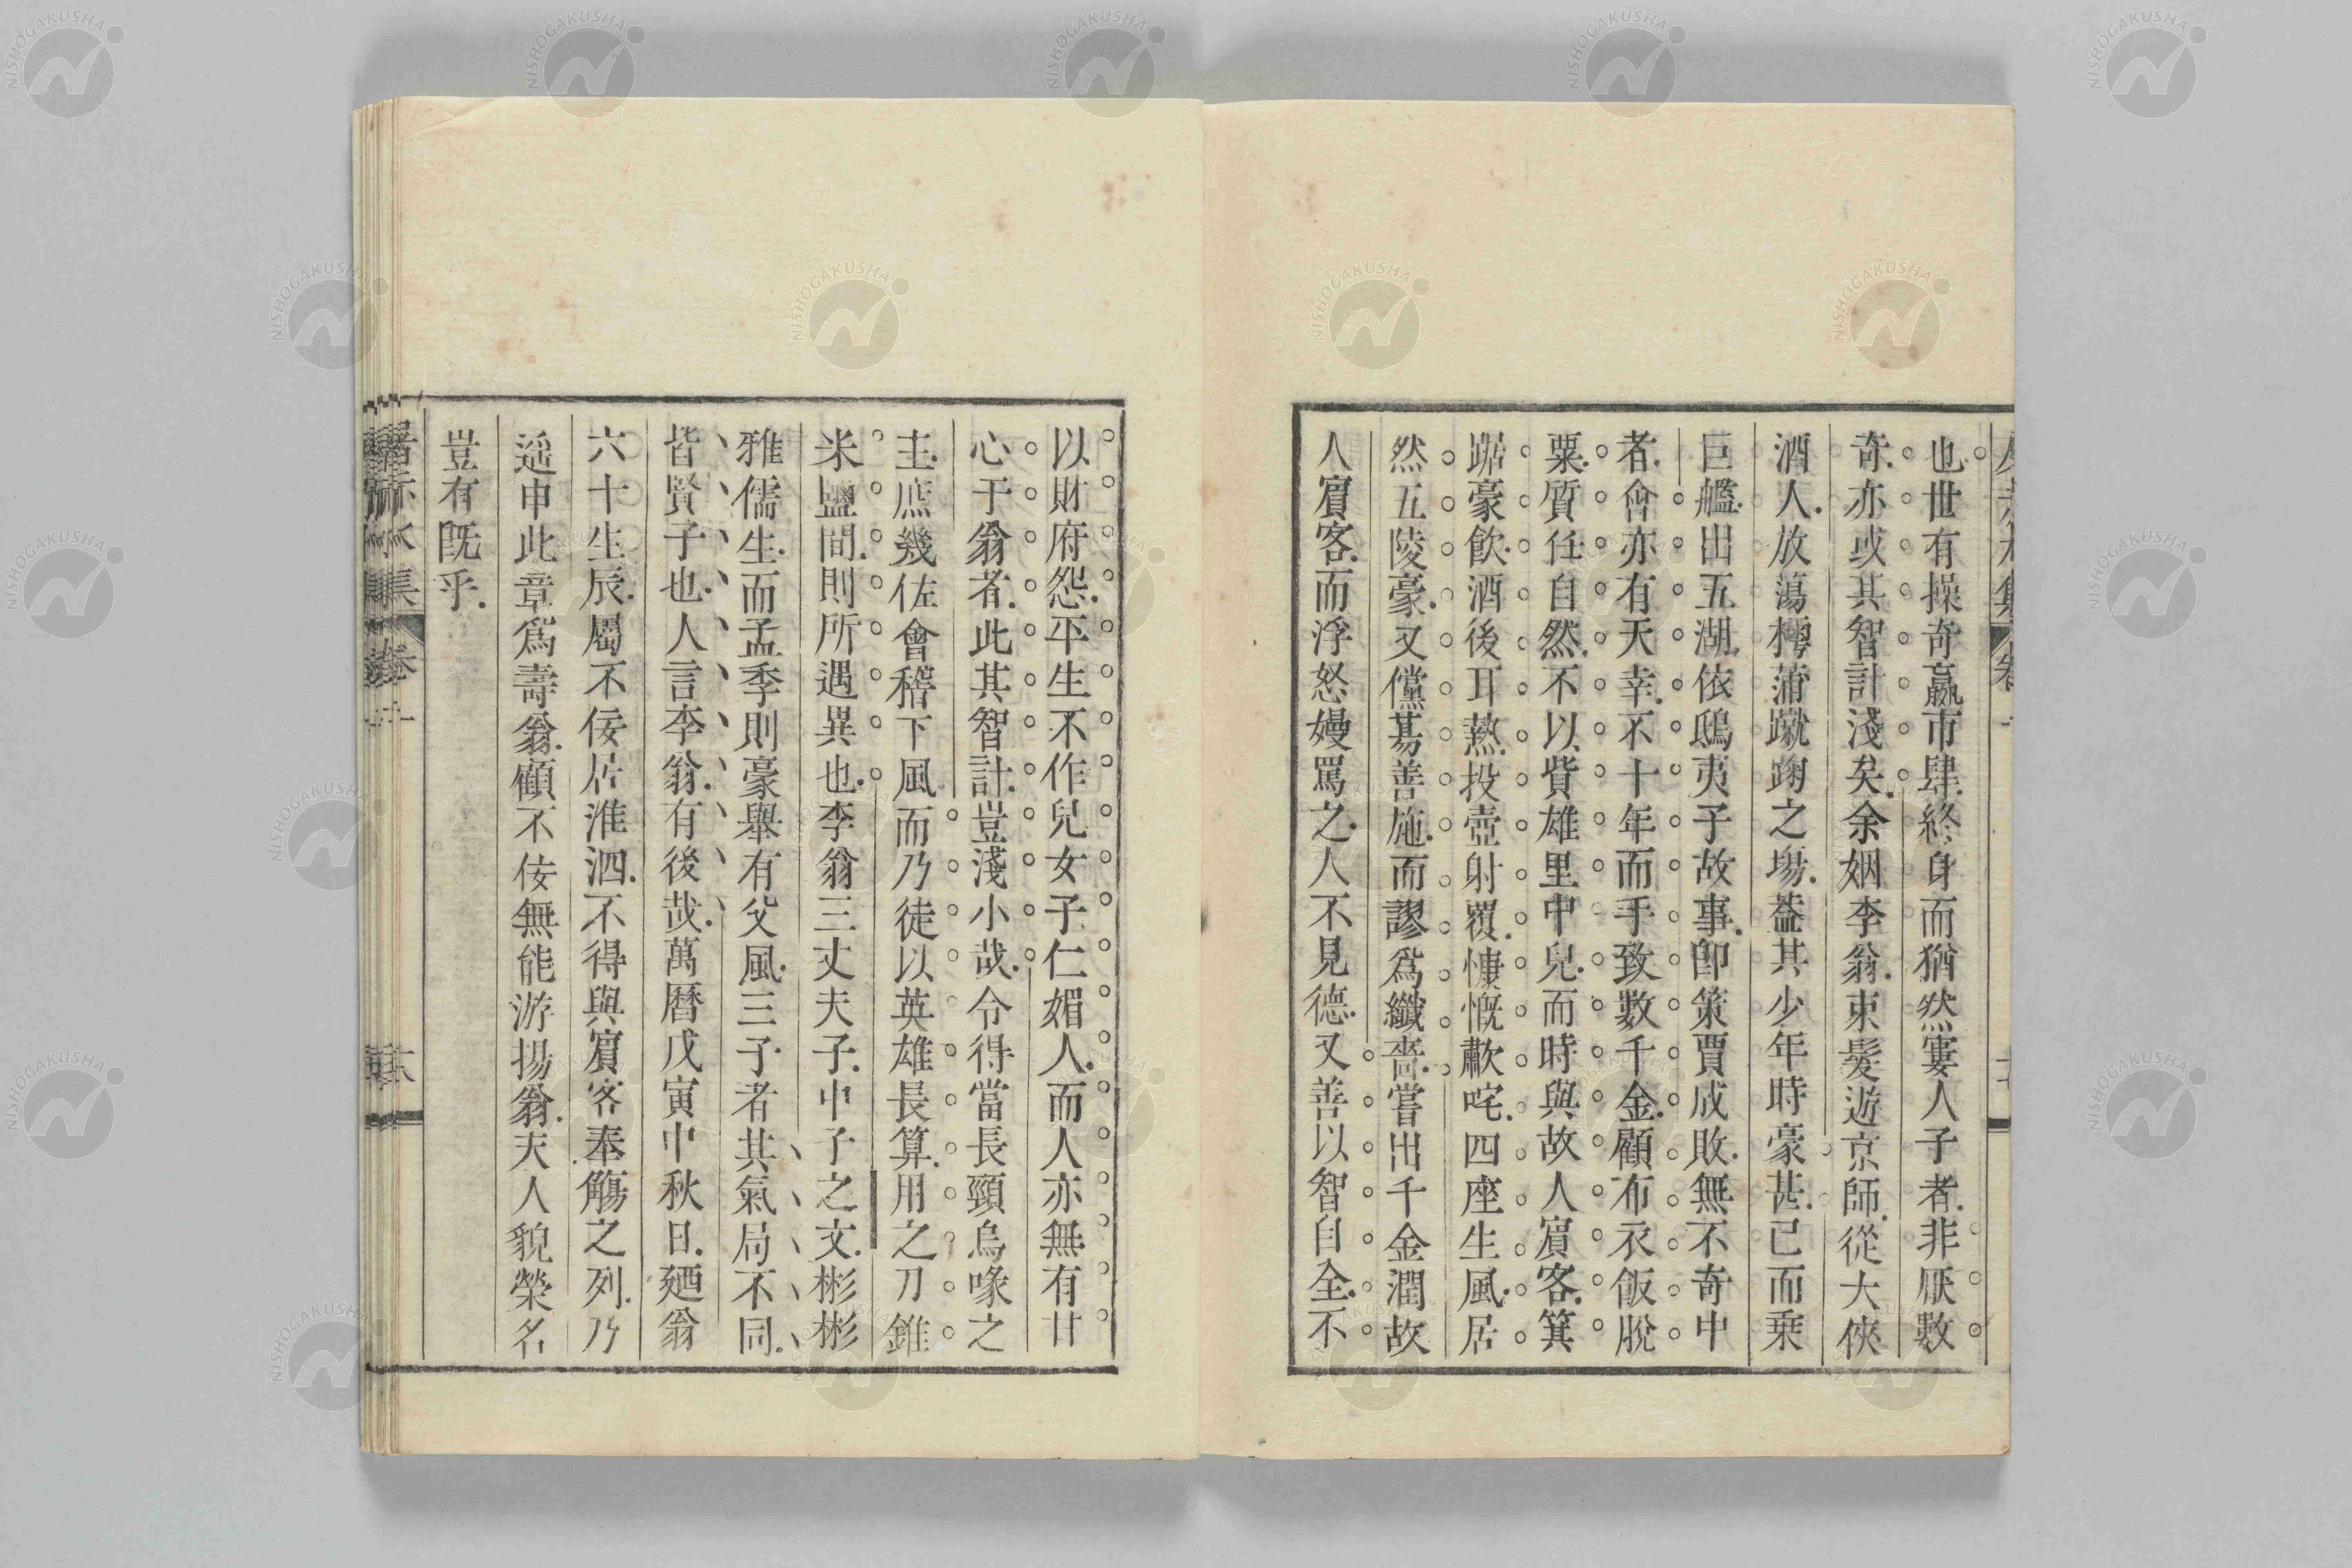 也世有操奇贏市肆終身而猶然窶人子者非厭數
奇亦或其智計淺矣余姻李翁束髮遊京師從大俠
酒人放蕩樗蒲蹴踘之場蓋其少年時豪甚已而乗
巨艦出五湖依鴟夷子故事卽策賈成敗無不奇中
者會亦有天幸不十年而手致數千金顧布衣飯脫
粟質任自然不以貲雄里中兒而時與故人賓客箕
踞豪飲酒後耳熱投壺射覆慷慨歗咤四座生風居
然五陵豪又儻募善施而謬爲纖嗇嘗出千金潤故
人賓客而浮怒嫚罵之人不見德又善以智自全不
以財府怨平生不作兒女子仁媚人而人亦無有甘
心于翁者此其智計豈淺小哉令得當長頸烏喙之
主庶幾佐會稽下風而乃徒以英雄長算用之刀錐
米鹽間則所遇異也李翁三丈夫子中子之文彬彬
雅儒生而孟季則豪舉有父風三子者其氣局不同
皆賢子也人言李翁有後哉萬曆戊寅中秋日廼翁
六十生辰屬不佞居淮泗不得與賓客奉觴之列乃
遥申此章爲壽翁顧不佞無能游揚翁夫人貌榮名
豈有既乎
NISHOGAKUSHA